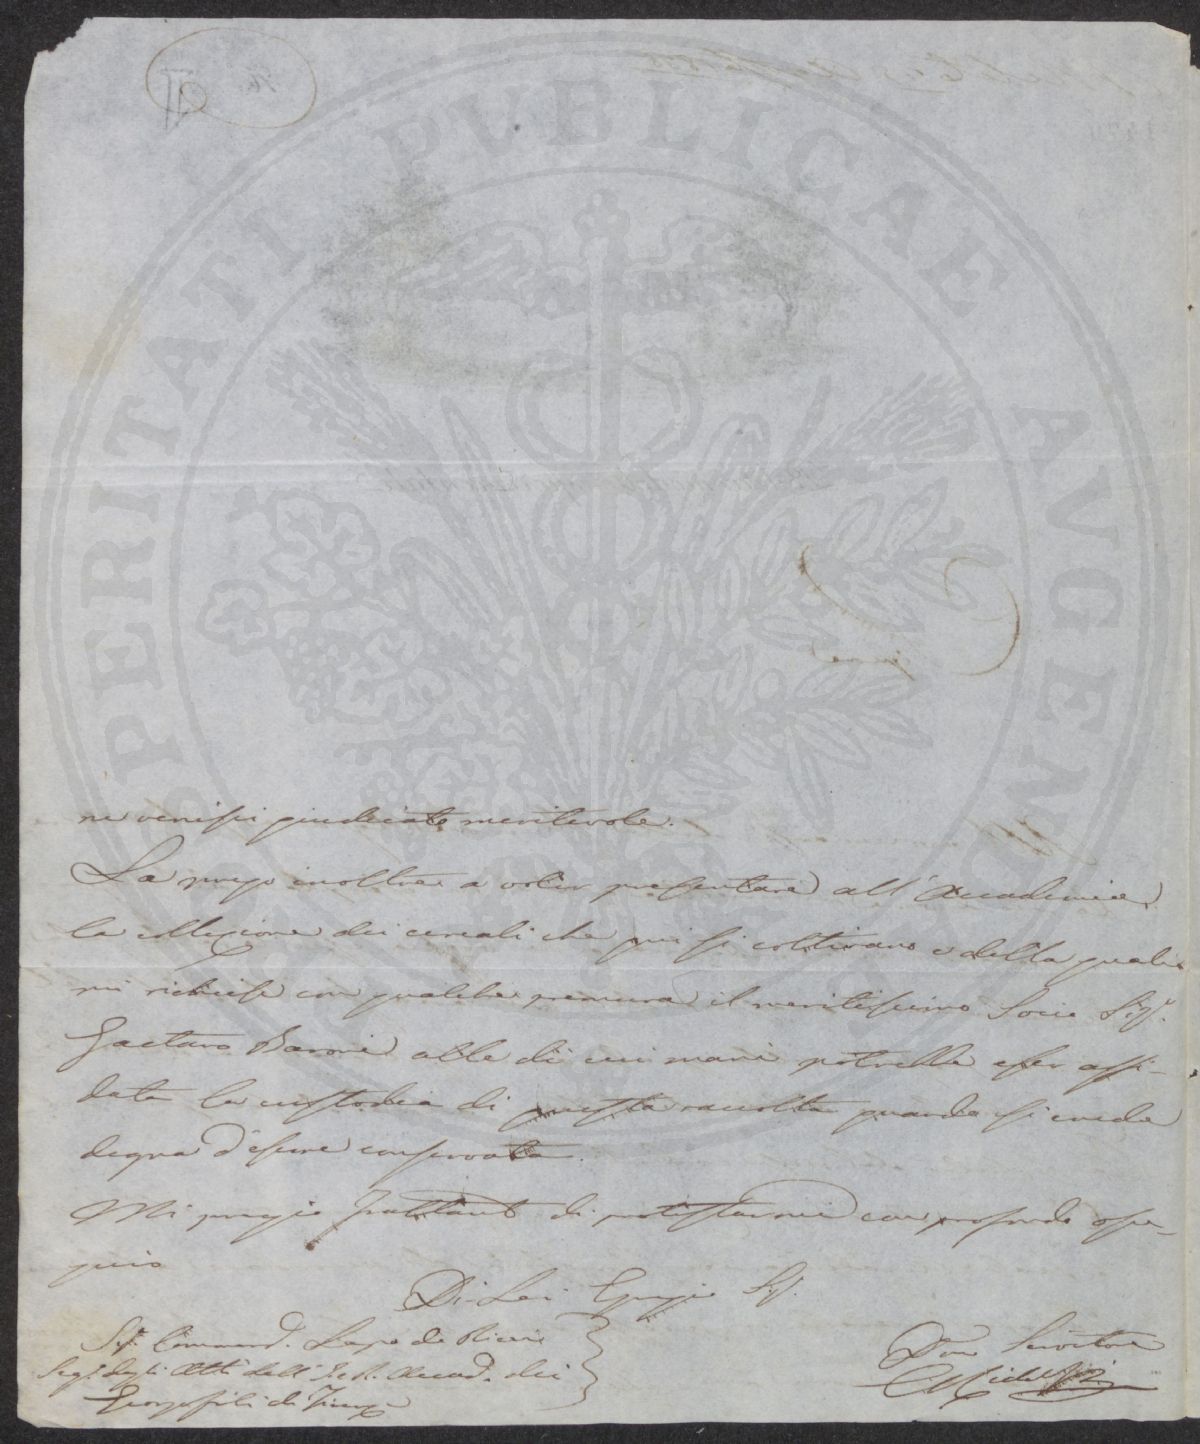 PROSPERITATI PUBLICAE AUGENDAE
ne venissi giudicato meritevole.
La prego inoltre a voler presentare all'Accademia
la collezione dei cereali che qui si coltivano e della quale
mi richiese con qualche premura il meritissimo Socio Sigr.
Gaetano Baroni alle di cui mani potrebbe esser affi-
data la custodia di questa raccolta quando si creda
degna d'essere conservata.
Mi pregio frattanto di protestarmi con profondo osse-
quio
Di Lei Egregio Sigr.
Sigr. Command. Lapo de Ricci
Segr. degli Atti dell'I. e R. Accad. dei
Georgofili di Firenze
Dev. Servitore